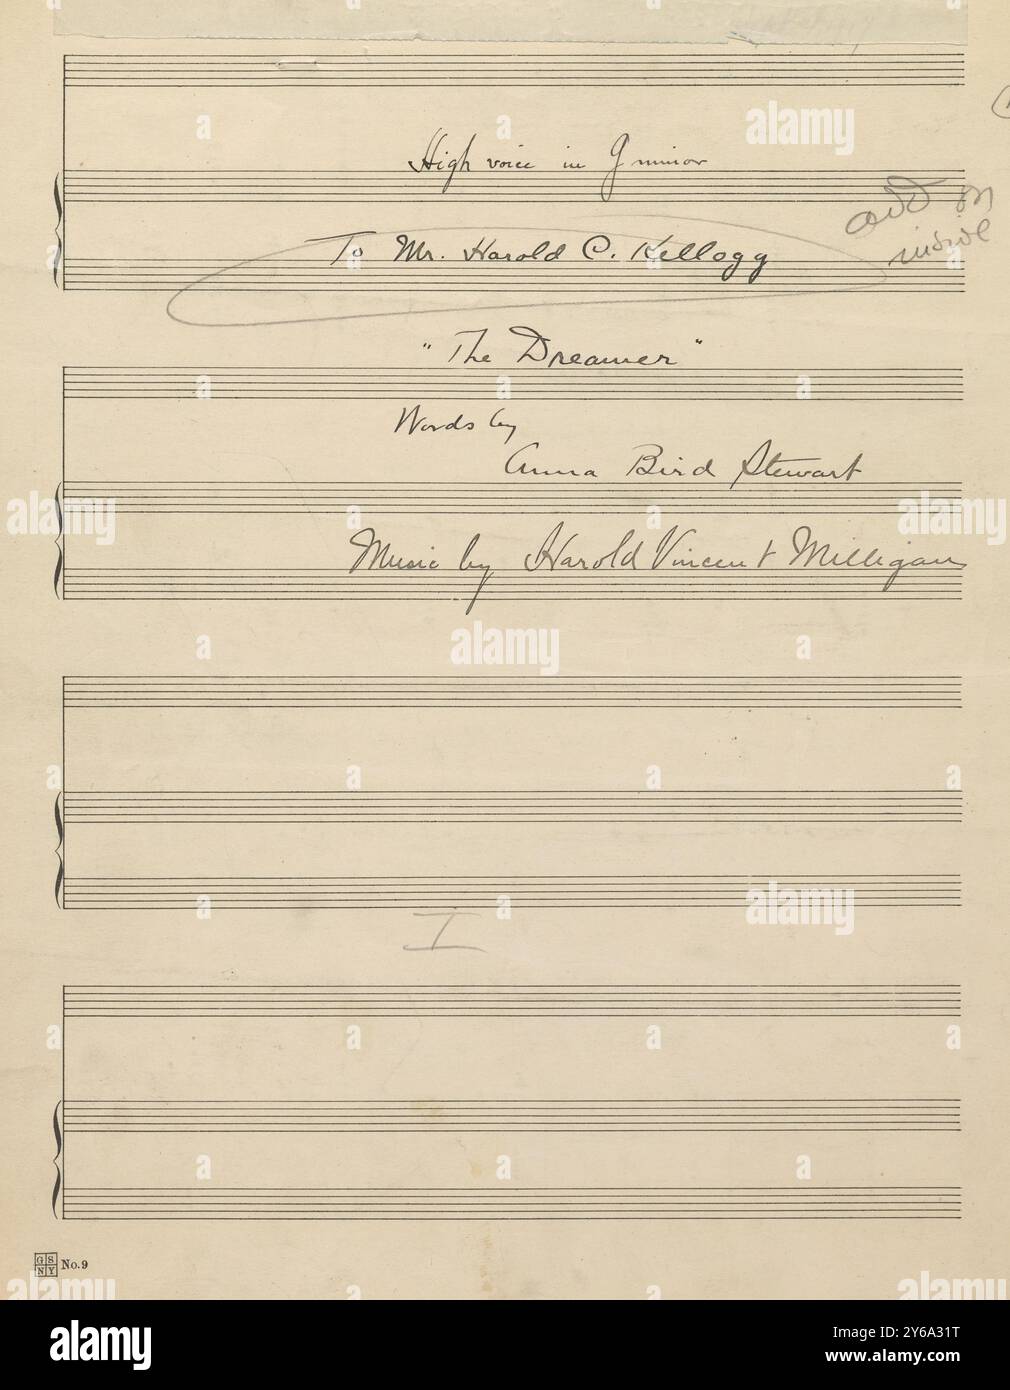 High voice in G minor
add on
inside
To Mr. Harold C. Kellogg
"The Dreamer"
Words by
Anna Bird Stewart
Music by Harold Vincent Milligan
I
G S
N Y
No. 9
alamy
Image ID: 2Y6A31T
www.alamy.com